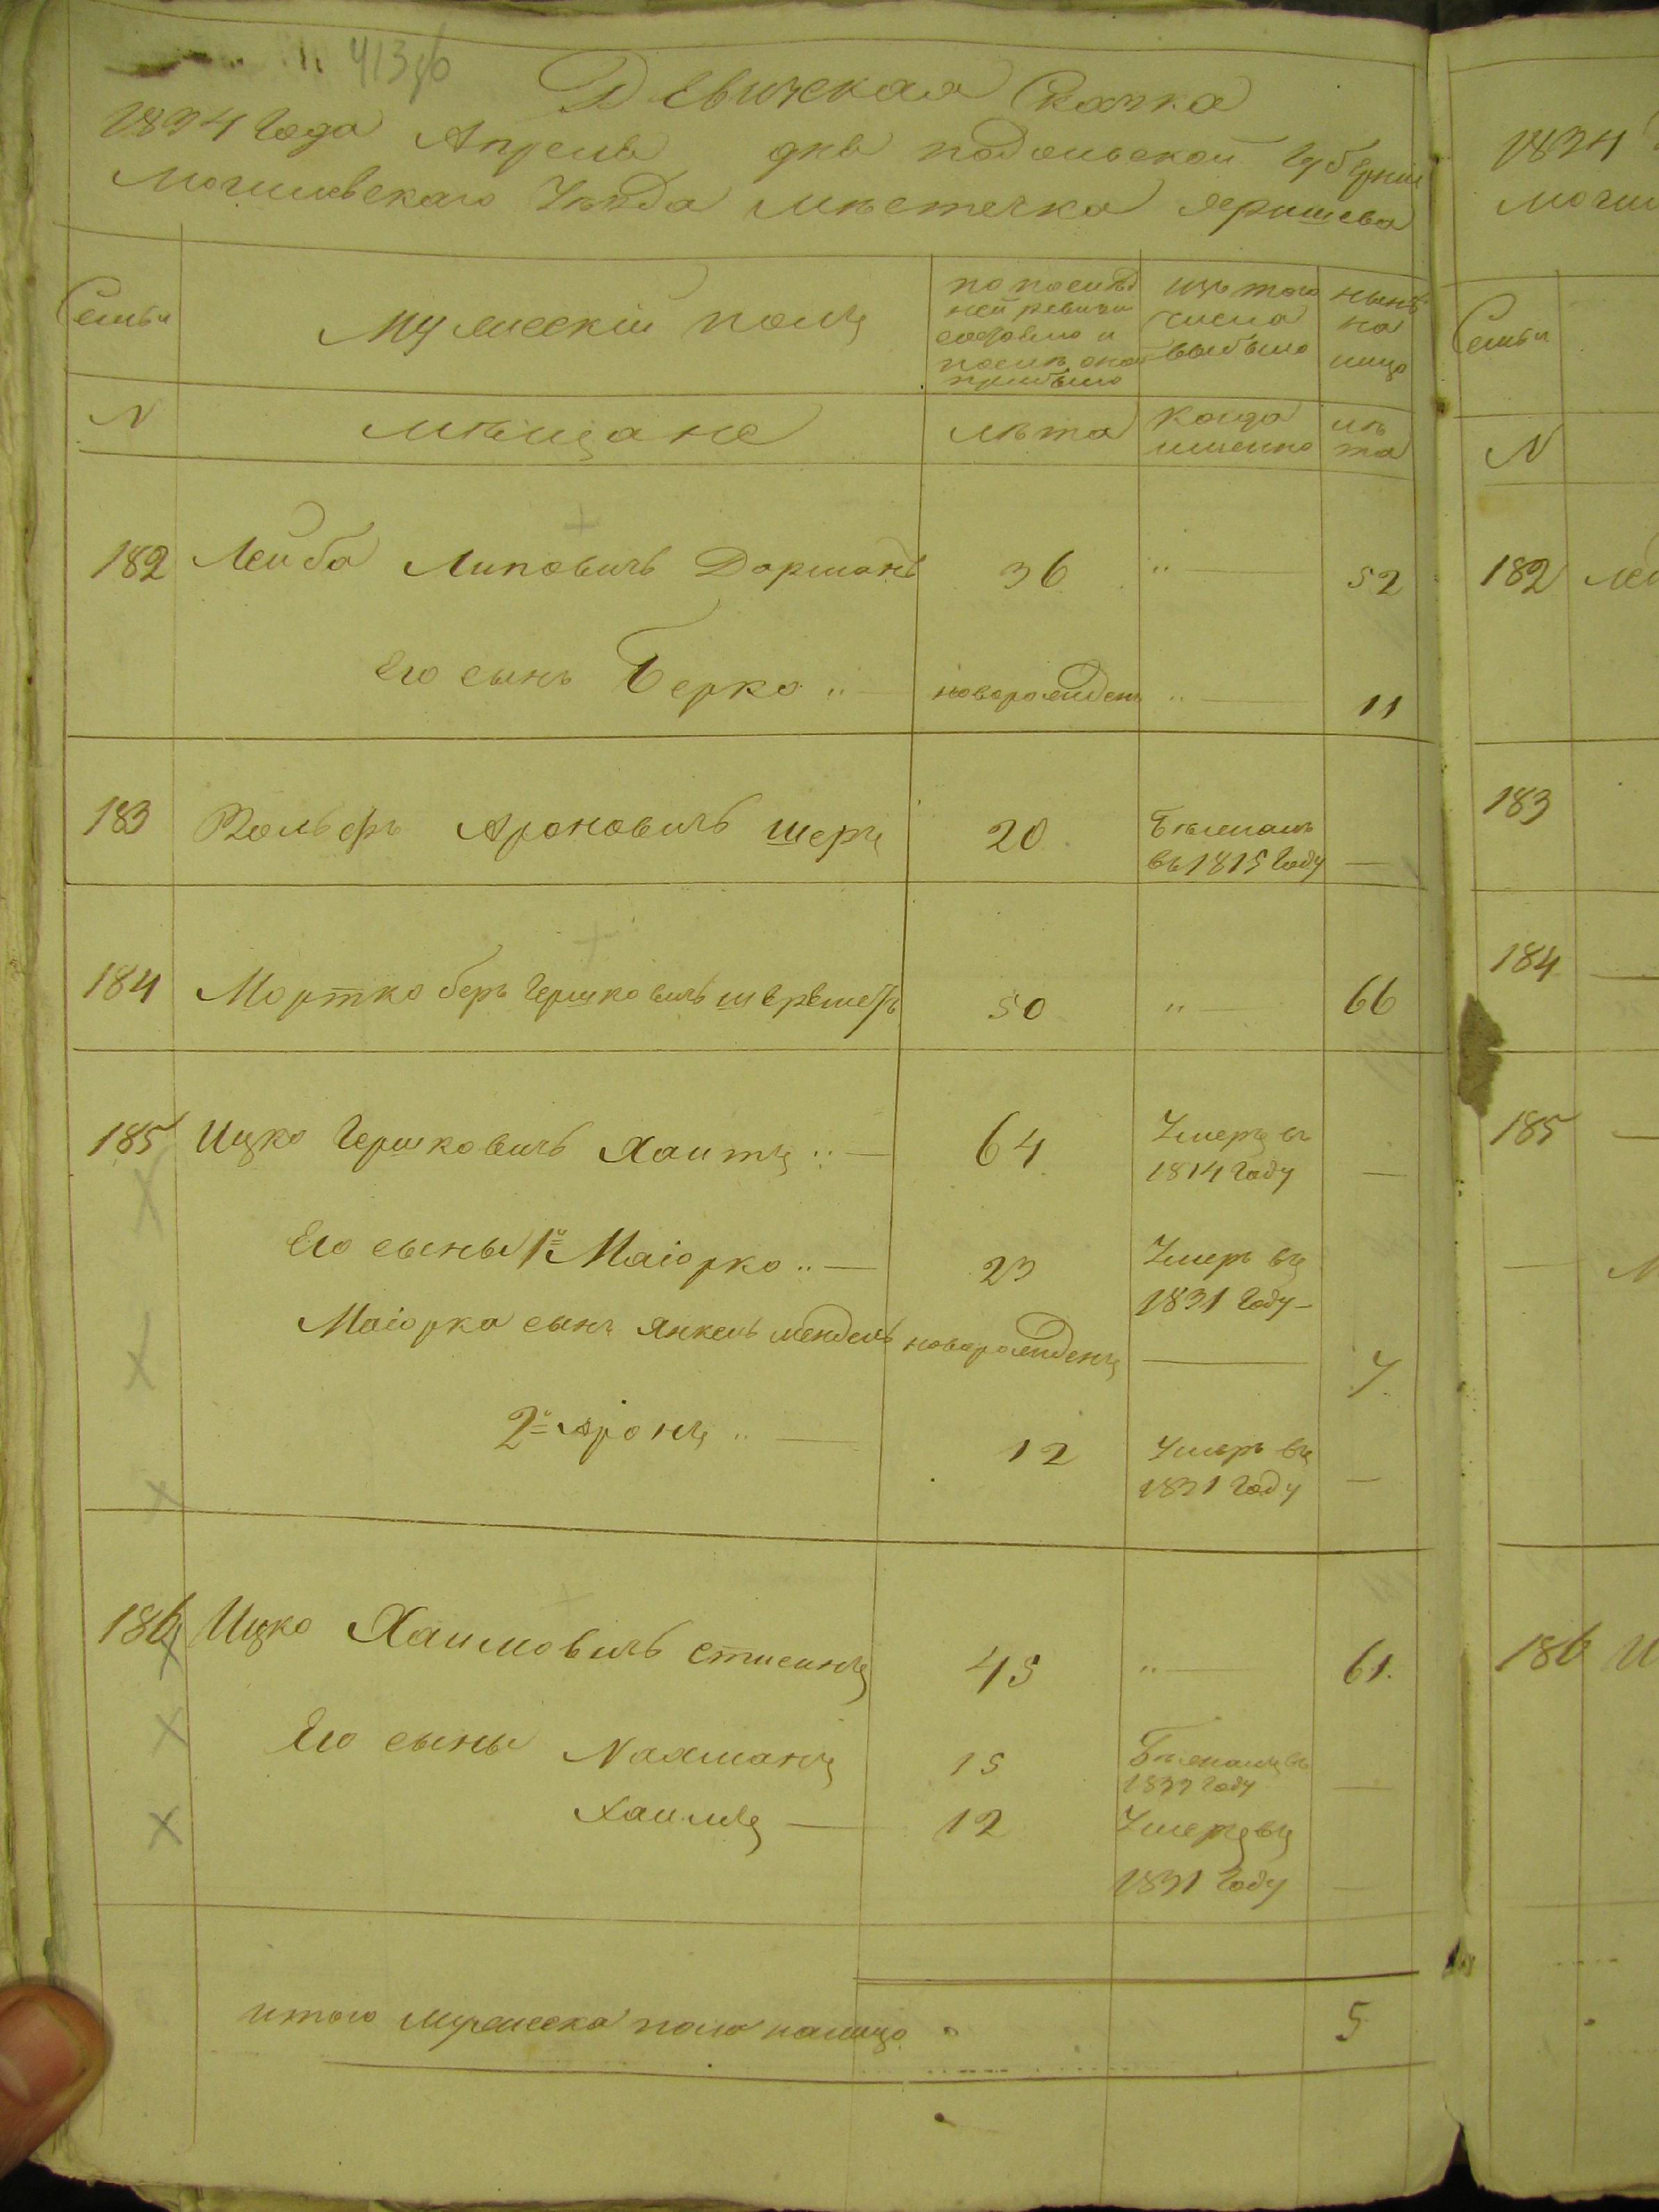 413 об
Ревижская Скаска
1834 Года Апреля дня подольской Губерніи
Могилевскаго Уѣзда мѣстечка Яришева
Семьи
Мужескій полъ
по послѣд
ней ревизіи
состояло и
послѣ оной
прибыло
изъ того
числа
выбыло
нынѣ
на
лицо
N
мѣщане
лѣта
когда
именно
лѣ
та
182 Лейба Липовичъ Дорманъ 36 „ — 52
Его сынъ Берко „ — новорожденъ „ — 11
183 Вольфъ Ароновичъ шеръ 20 Бѣжалъ
въ 1815 Году —
184 Мортко беръ Гершковичъ 50 „ — 66
185 Ицко Гершковичъ Хаитъ „ — 64 Умеръ въ
1814 Году —
Его сыны 1й Маіорко „ — 23 Умеръ въ
1831 Году —
Маіорка сынъ Янкель мендель новорожденъ — 7
2й Аронъ „ — 12 Умеръ въ
1831 Году —
186 Ицко Хаимовичъ 45 „ — 61.
Его сыны Нахманъ 15 Бѣжалъ въ
1833 Году —
Хаимъ — 12 Умеръ въ
1831 Году —
итого мужеска пола налицо 5
1834
Могил
Семьи
N
182 Лей
183
184 —
185 —
186 И